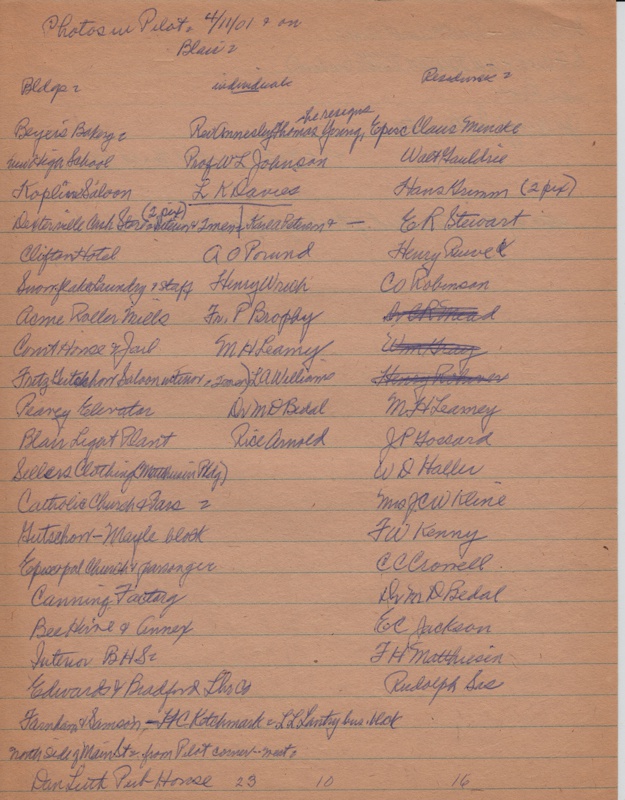 Photos in Pilot, 4/11/01 & on
Blair
Bldgs individuals Residences
he resigns
Beyers Bakery Rev Annesley Thomas Young, Episc Claus Mencke
new High School Prof W L Johnson Walt Gauldrie
Koplin Saloon L K Davies Hans Grimm (2 pix)
(2 pix)
Dexterville Store & 2 men) & — E R Stewart
Clifton Hotel A O Pound Henry
Snowflake Laundry & staff Henry Wrich CO Robinson
Acme Roller Mills Fr. P Brophy Dr C R Mead
Court House & Jail M H Leamey Wm Gray
Fritz Gutschow Saloon interior, 2 men) L A Williams Henry Rohwer
Peavey Elevator Dr M D Bedal M H Leamey
Blair Light Plant Rice Arnold J P Gossard
Sellers Clothing (Matthiesin Bldg) W D Haller
Catholic Church & Pars Mrs J C W Kline
Gutschow-Mayle block F W Kenny
Episcopal Church & C C Crowell
Canning Factory Dr M D Bedal
Bee Hive & Annex E C Jackson
Interior B H S F H Matthiesin
Edwards & Bradford Lbr Co Rudolph Sis
Farnham & Samson, - H C Ketchmark - L L Lantry bus. block
north side of Main St from Pilot corner-west
Dan Pub House 23 10 16